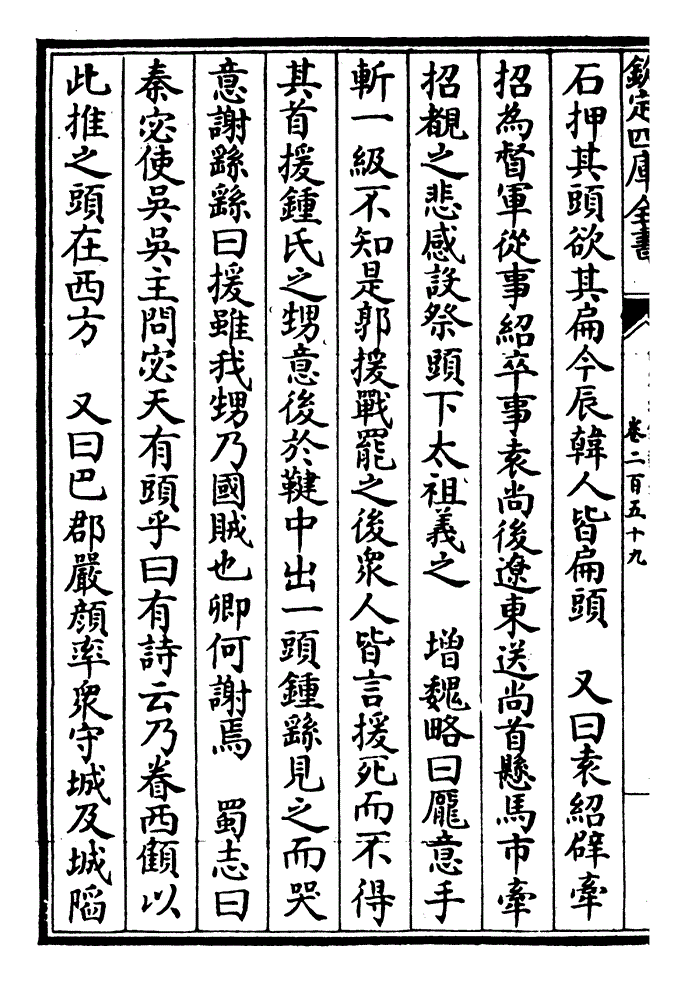 欽定四庫全書
卷二百五十九
石押其頭欲其扁今辰韓人皆扁頭　又曰袁紹辟牽
招為督軍從事紹卒事袁尚後遼東送尚首懸馬市牽
招覩之悲感設祭頭下太祖義之　增魏略曰龎意手
斬一級不知是郭援戰罷之後衆人皆言援死而不得
其首援鍾氏之甥意後於鞬中出一頭鍾繇見之而哭
意謝繇繇曰援雖我甥乃國賊也卿何謝焉　蜀志曰
秦宓使吳吳主問宓天有頭乎曰有詩云乃眷西顧以
此推之頭在西方　又曰巴郡嚴顔率衆守城及城陷